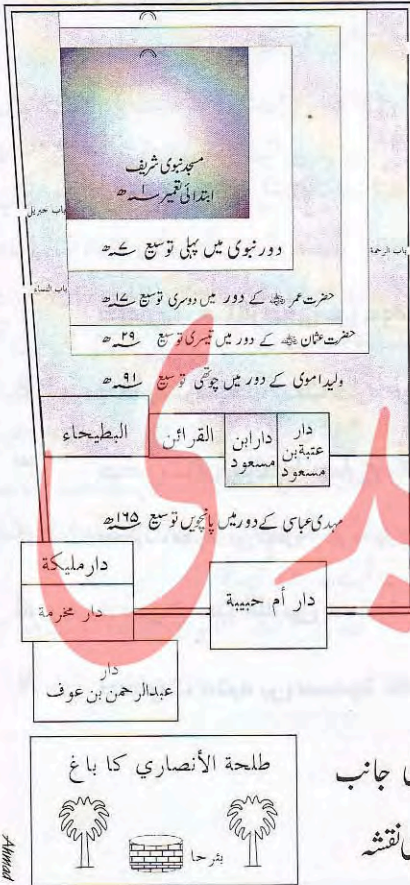 مسجد نبوی شریف
ابتدائی تعمیر ۱ سنہ ھ
باب جبریل
باب الرحمة
باب النساء
دور نبوی میں پہلی توسیع ۷ سنہ ھ
حضرت عمر رضی اللہ عنہ کے دور میں دوسری توسیع ۱۷ سنہ ھ
حضرت عثمان رضی اللہ عنہ کے دور میں تیسری توسیع ۲۹ سنہ ھ
ولید اموی کے دور میں چوتھی توسیع ۹۱ سنہ ھ
البطيحاء
القرائن
دار ابن مسعود
دار عتبة بن مسعود
مہدی عباسی کے دور میں پانچویں توسیع ۱۶۵ سنہ ھ
دار مليكة
دار مخرمة
دار أم حبيبة
دار
عبدالرحمن بن عوف
طلحة الأنصاري کا باغ
بئرحا
جانب
نقشہ
Ahmad